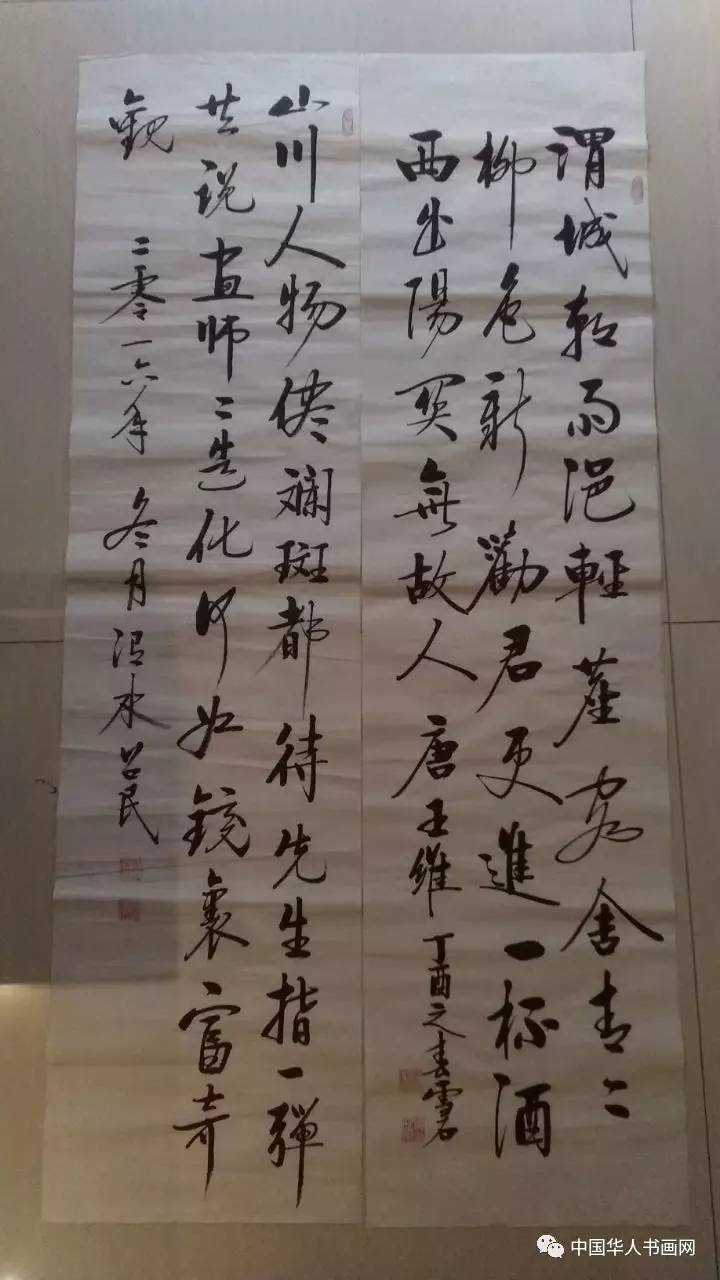 渭城朝雨浥輕塵客舍青二
柳色新勸君更進一杯酒
西出陽関無故人 唐王維 丁酉之春雪石
山川人物侭斓斑都待先生指一彈
共说画师二造化何如鏡裏富奇
觀 二零一六年 冬月 水 民
中国华人书画网